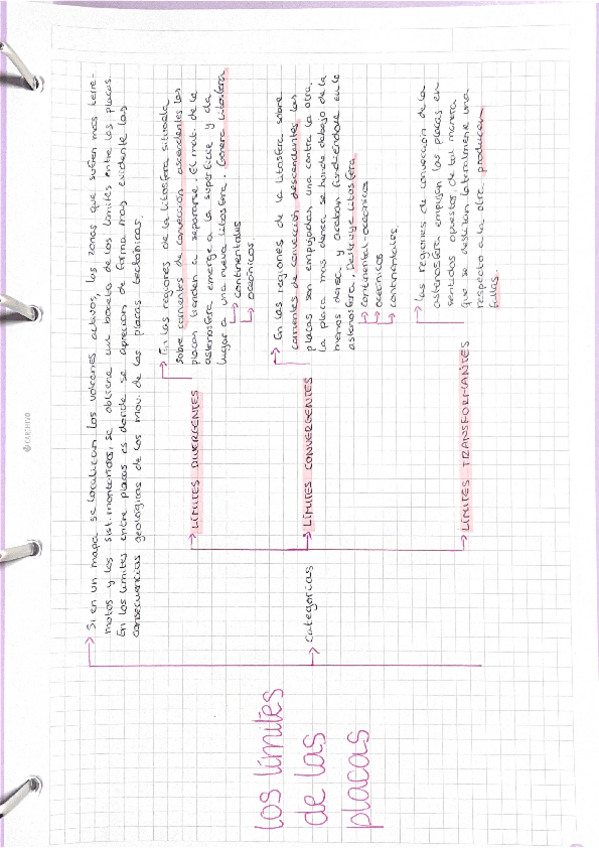 Los límites
de las
placas
→ Si en un mapa se localizan los volcanes activos, las zonas que sufren mas terre-
motos y los sist. montañosos, se obtiene un boceto de los límites entre las placas.
En los límites entre placas es donde se aprecian de forma mas evidente las
consecuencias geológicas de los mov. de las placas tectónicas.
→ Categorias
→ LÍMITES DIVERGENTES
→ En las regiones de la litosfera situada
sobre corrientes de convección ascendentes las
placas tienden a separarse. El mat. de la
astenosfera emerge a la superficie y da
lugar a una nueva litosfera. Genera litosfera
→ continentales
→ oceánicos.
→ LÍMITES CONVERGENTES
→ En las regiones de la litosfera sobre
corrientes de convección descendentes las
placas son empujadas una contra la otra.
La placa mas densa se hunde debajo de la
menos densa y acaban fundiéndose en la
astenosfera. Destruye litosfera
→ continental-oceánicos
→ oceánicos
→ continentales.
→ LÍMITES TRANSFORMANTES
→ Las regiones de convección de la
astenosfera empujan las placas en
sentidos opuestos de tal manera
que se deslizan lateralmente una
respecto a la otra. producen
fallas.